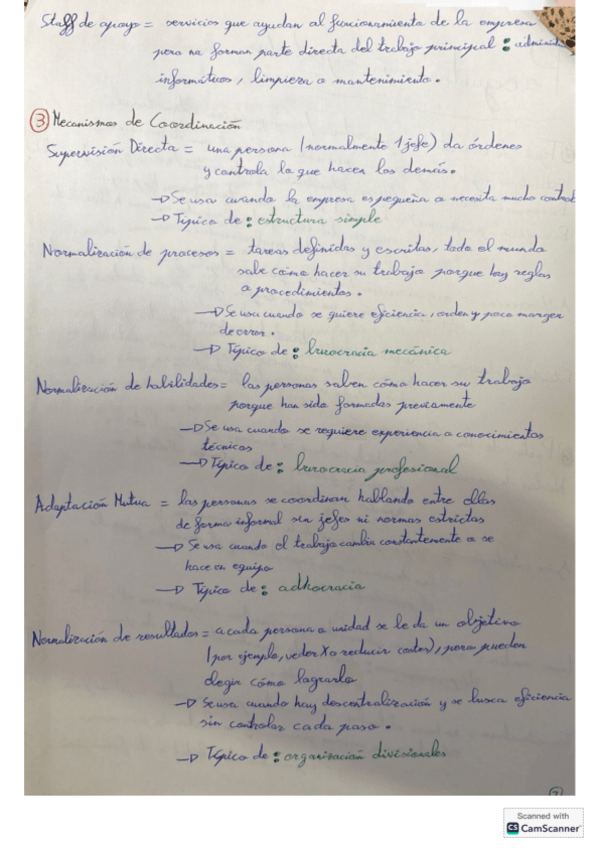 Staff de apoyo = servicios que ayudan al funcionamiento de la empresa
pero no forman parte directa del trabajo principal :
informáticos, limpieza o mantenimiento.
③ Mecanismos de Coordinación
Supervisión Directa = una persona (normalmente 1 jefe) da órdenes
y controla lo que hacen los demás.
→ Se usa cuando la empresa es pequeña o necesita mucho control
→ Típico de : estructura simple
Normalización de procesos = tareas definidas y escritas, todo el mundo
sabe cómo hacer su trabajo porque hay reglas
o procedimientos.
→ Se usa cuando se quiere eficiencia, orden y poco margen
de error.
→ Típico de : burocracia mecánica
Normalización de habilidades = las personas saben cómo hacer su trabajo
porque han sido formadas previamente
→ Se usa cuando se requiere experiencia o conocimientos
técnicos
→ Típico de : burocracia profesional
Adaptación Mutua = las personas se coordinan hablando entre ellas
de forma informal sin jefes ni normas estrictas
→ Se usa cuando el trabajo cambia constantemente o se
hace en equipo
→ Típico de : adhocracia
Normalización de resultados = a cada persona o unidad se le da un objetivo
(por ejemplo, veder X o reducir costes), pero pueden
elegir cómo lograrlo
→ Se usa cuando hay descentralización y se busca eficiencia
sin controlar cada paso.
→ Típico de : organización divisionales
Scanned with
CS CamScanner